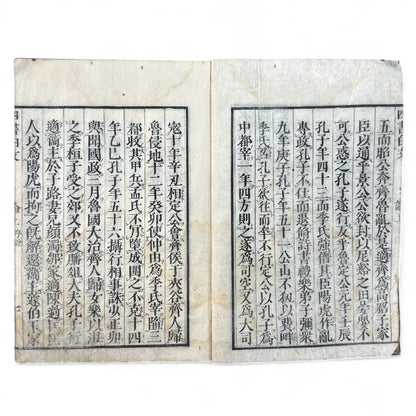 五而昭公奔齊魯亂於是適齊為高昭子家
臣以通乎景公公欲封以尼谿之田晏嬰不
可公惑之孔子遂行反乎魯定公元年壬辰
孔子年四十三而季氏强僭其臣陽虎作亂
專政孔子不仕而退脩詩書禮樂弟子彌衆
九年庚子孔子年五十一公山不狃以費畔
季氏召孔子欲往而卒不行定公以孔子為
中都宰一年四方則之遂為司空又為大司
寇十年辛丑相定公會齊侯于夾谷齊人歸
魯侵地十二年癸卯使仲由為季氏宰墮三
都收其甲兵孟氏不肯墮成圍之不克十四
年乙巳孔子年五十六攝行相事誅少正卯
與聞國政三月魯國大治齊人歸女樂以沮
之季桓子受之郊又不致膰俎大夫孔子行
適衛主於子路妻兄顏濁鄒家適陳過匡匡
人以為陽虎而拘之既解還衛主蘧伯玉家
四書白文